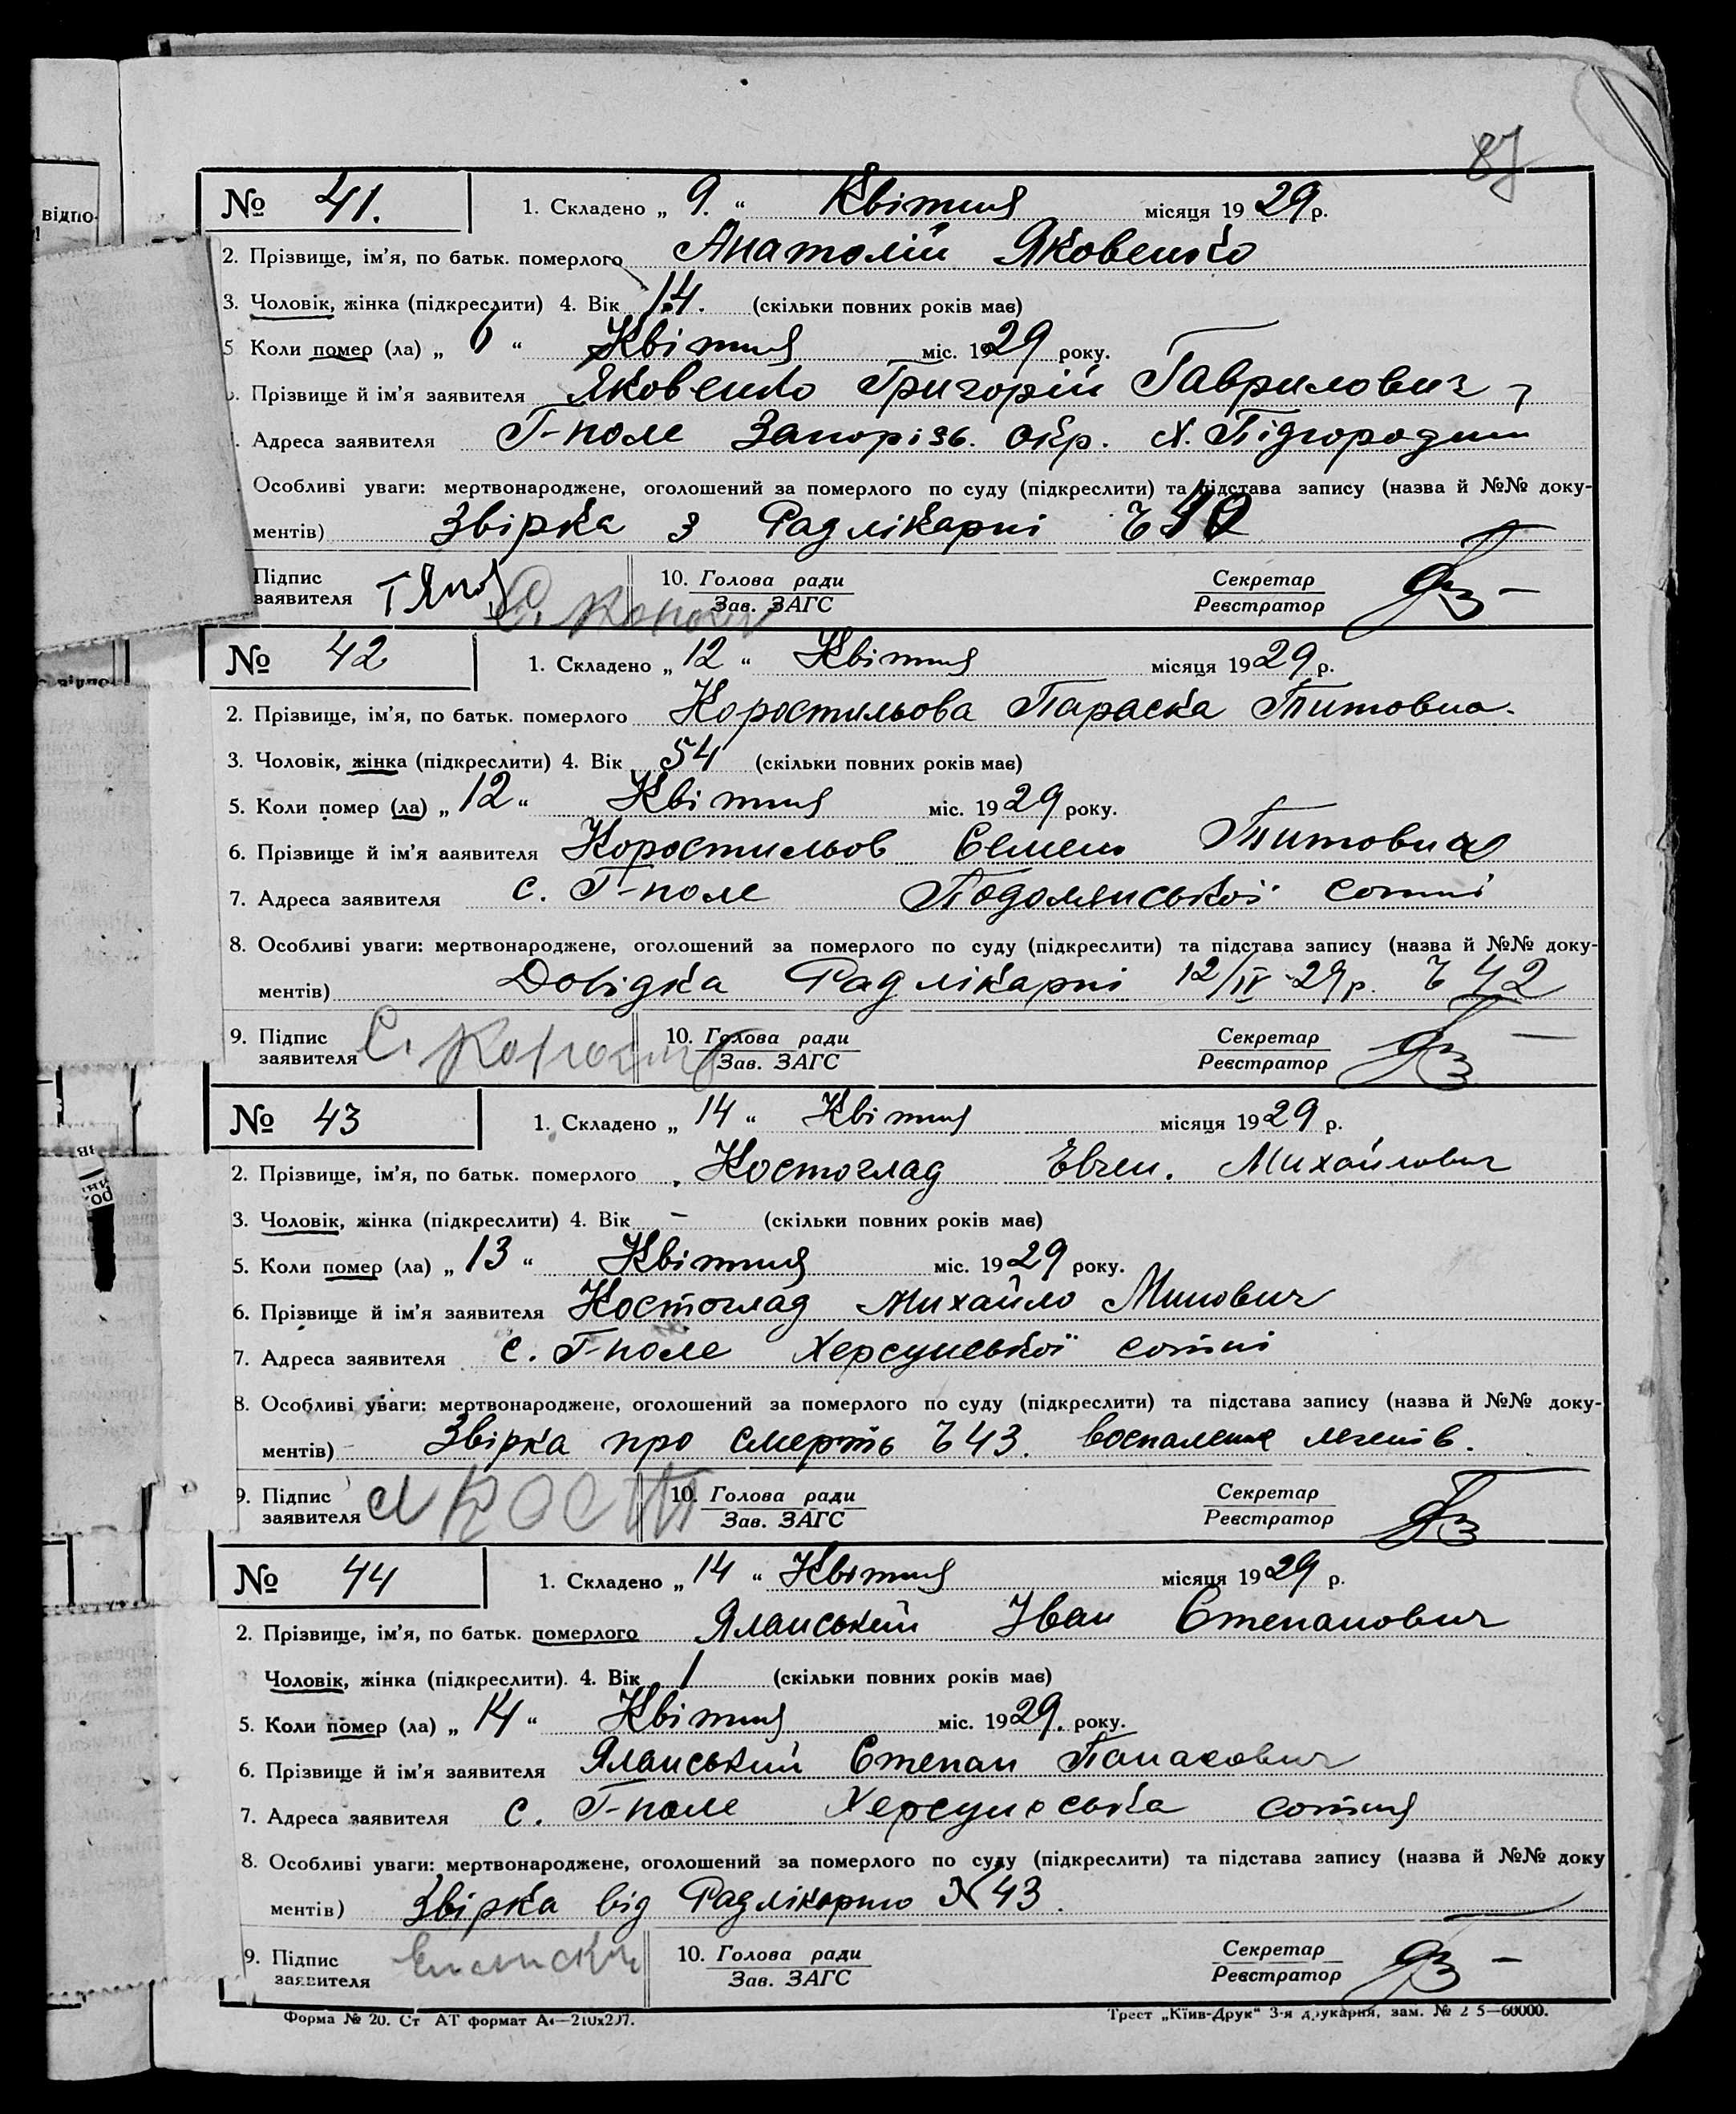 87
відпо-
№ 41. 1. Складено „ 9. “ Квітня місяця 1929 р.
2. Прізвище, ім'я, по батьк. померлого Анатолій Яковенко
3. Чоловік, жінка (підкреслити) 4. Вік 14. (скільки повних років має)
5 Коли помер (ла) „ 6 “ Квітня міс. 1929 року.
Прізвище й ім'я заявителя Яковенко Григорій Гаврилович,
Адреса заявителя Г-поле Запорізь. окр. х. Підгородн
Особливі уваги: мертвонароджене, оголошений за померлого по суду (підкреслити) та підстава запису (назва й №№ доку-
ментів) Звірка з Радлікарні Ч 40
Підпис 10. Голова ради Секретар
заявителя Зав. ЗАГС Реєстратор
№ 42 1. Складено „ 12 “ Квітня місяця 1929 р.
2. Прізвище, ім'я, по батьк. померлого Коростильова Параска Титовна.
3. Чоловік, жінка (підкреслити) 4. Вік 54 (скільки повних років має)
5. Коли помер (ла) „ 12 “ Квітня міс. 1929 року.
6. Прізвище й ім'я ааявителя Коростильов Семен Титович
7. Адреса заявителя с. Г-поле Подолянської сотні
8. Особливі уваги: мертвонароджене, оголошений за померлого по суду (підкреслити) та підстава запису (назва й №№ доку-
ментів) Довідка Радлікарні 12/IV-29р. Ч 42
9. Підпис 10. Голова ради Секретар
заявителя Зав. ЗАГС Реєстратор
№ 43 1. Складено „ 14 “ Квітня місяця 1929 р.
2. Прізвище, ім'я, по батьк. померлого Костоглад Евген. Михайлович
3. Чоловік, жінка (підкреслити) 4. Вік - (скільки повних років має)
5. Коли помер (ла) „ 13 “ Квітня міс. 1929 року.
6. Прізвище й ім'я заявителя Костоглад Михайло Минович
7. Адреса заявителя с. Г-поле Херсунської сотні
8. Особливі уваги: мертвонароджене, оголошений за померлого по суду (підкреслити) та підстава запису (назва й №№ доку-
ментів) Звірка про смерть Ч 43. воспаление легенів.
9. Підпис М КОСТ 10. Голова ради Секретар
заявителя Зав. ЗАГС Реєстратор
№ 44 1. Складено „ 14 “ Квітня місяця 1929 р.
2. Прізвище, ім'я, по батьк. померлого Яланський Іван Степанович
Чоловік, жінка (підкреслити). 4. Вік 1 (скільки повних років має)
5. Коли помер (ла) „ 14 “ Квітня міс. 1929. року.
6. Прізвище й ім'я заявителя Яланський Степан Панасович
7. Адреса заявителя с. Г-поле Херсунська сотня
8. Особливі уваги: мертвонароджене, оголошений за померлого по суду (підкреслити) та підстава запису (назва й №№ доку
ментів) Звірка від Радлікарні № 43.
9. Підпис 10. Голова ради Секретар
заявителя Зав. ЗАГС Реєстратор
Форма № 20. Ст АТ формат А4—210х297. Трест „Київ-Друк“ 3-я друкарня, зам. № 2 5—60000.